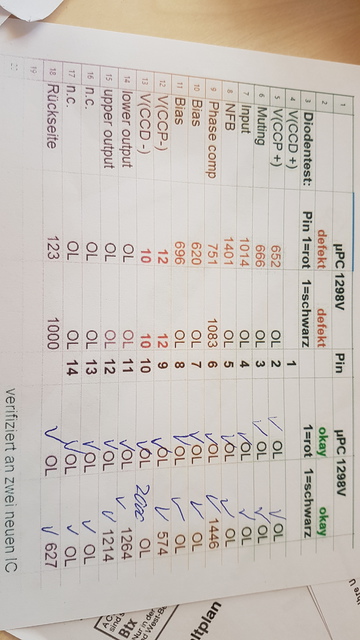 1 µPC 1298V Pin µPC 1298V
2 defekt defekt okay okay
3 Diodentest: Pin 1=rot 1=schwarz 1=rot 1=schwarz
4 V(CCD +) 1
5 V(CCP +) 652 OL 2 OL OL
6 Muting 666 OL 3 OL OL
7 Input 1014 OL 4 OL OL
8 NFB 1401 OL 5 OL OL
9 Phase comp 751 1083 6 OL 1446
10 Bias 620 OL 7 OL OL
11 Bias 696 OL 8 OL OL
12 V(CCP-) 12 12 9 OL 574
13 V(CCD -) 10 10 10 OL 2000 OL
14 lower output OL OL 11 OL 1264
15 upper output OL OL 12 OL 1214
16 n.c. OL OL 13 OL OL
17 n.c. OL OL 14 OL OL
18 Rückseite 123 1000 OL 627
19
verifiziert an zwei neuen IC
ltplan
Nur in de
d West-B
Btx
sind